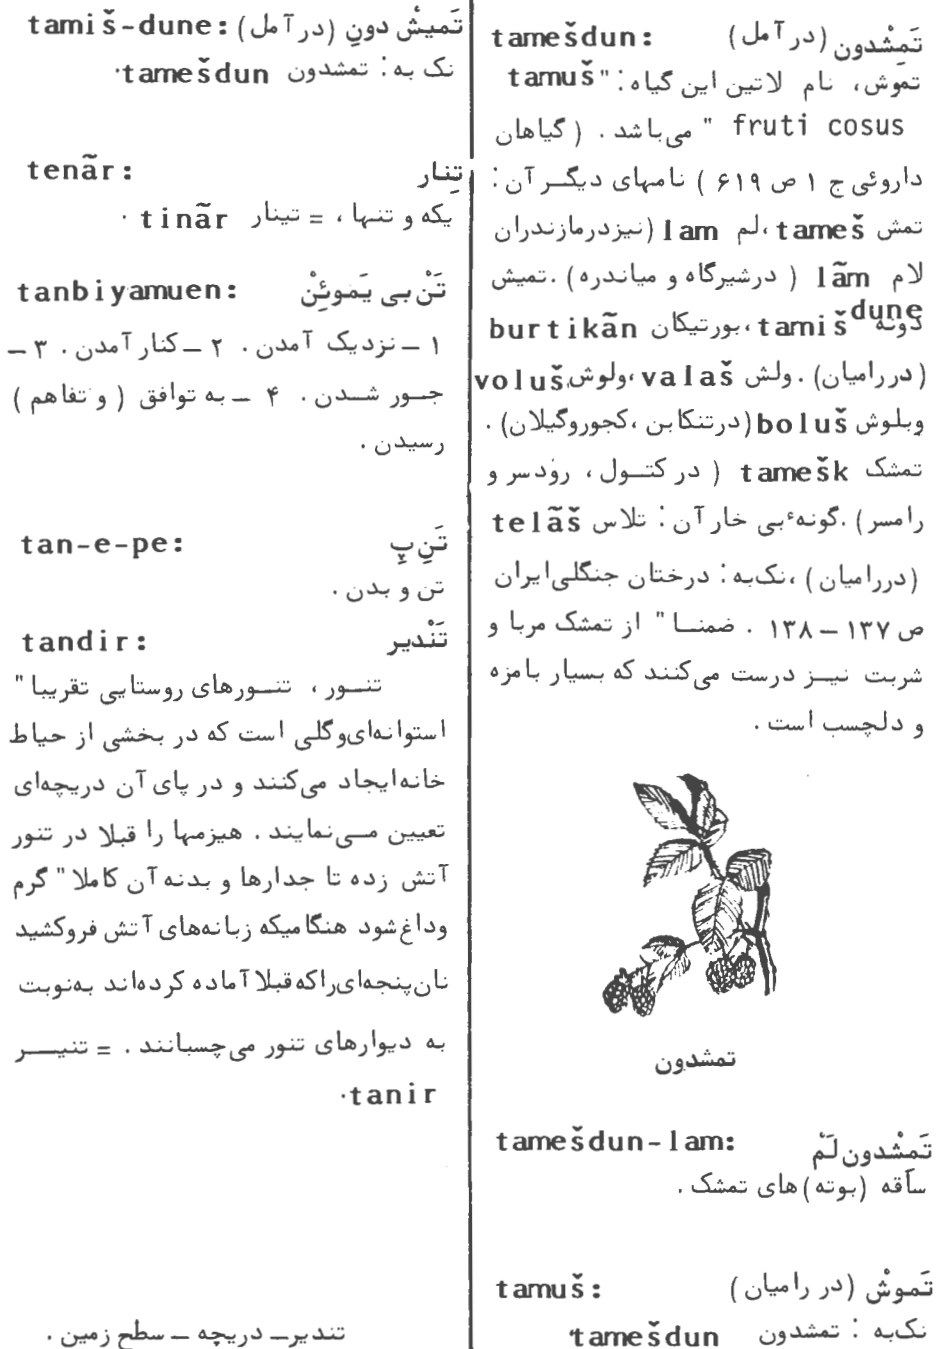 تَمِشْدون (در آمل) tamešdun:
تموش، نام لاتین این گیاه: "tamuš
fruti cosus " می‌باشد . ( گیاهان
داروئی ج ۱ ص ۶۱۹ ) نامهای دیگر آن :
تمش tameš، لم lam (نیزدرمازندران
لام lãm ( درشیرگاه و میاندره ) . تمیش
دونه tamišdune، بورتیکان burtikãn
(در رامیان) . ولش valaš ، ولوش voluš
وبلوش boluš (در تنکابن ، کجور وگیلان) .
تمشک tamešk ( در کتول ، رودسر و
رامسر) . گونهٔ بی خار آن : تلاس telãš
(در رامیان ) ، نک‌به : درختان جنگلی ایران
ص ۱۳۷ – ۱۳۸ . ضمنا " از تمشک مربا و
شربت نیز درست می‌کنند که بسیار بامزه
و دلچسب است .
تمشدون
تَمِشْدون لَمْ tamešdun-lam:
ساقه (بوته) های تمشک .
تَموشْ (در رامیان ) tamuš:
نک‌به : تمشدون tamešdun
تَمیشْ دونِ (در آمل) tamiš-dune:
نک به : تمشدون tamešdun.
تِنار tenãr:
یکه و تنها ، = تینار tinãr .
تَنْ بی یَموئِنْ tanbiyamuen:
۱ – نزدیک آمدن . ۲ – کنار آمدن . ۳ –
جور شدن . ۴ – به توافق ( و تفاهم )
رسیدن .
تَنِ پِ tan-e-pe:
تن و بدن .
تَنْدیر tandir:
تنور ، تنورهای روستایی تقریبا "
استوانه‌ای‌وگلی است که در بخشی از حیاط
خانه ایجاد می‌کنند و در پای آن دریچه‌ای
تعیین می‌نمایند . هیزمها را قبلا در تنور
آتش زده تا جدارها و بدنه آن کاملا " گرم
وداغ شود هنگامیکه زبانه‌های آتش فروکشید
نان پنجه‌ای‌راکه قبلا آماده کرده‌اند به‌نوبت
به دیوارهای تنور می‌چسبانند . = تنیر
tanir.
تندیر – دریچه – سطح زمین .